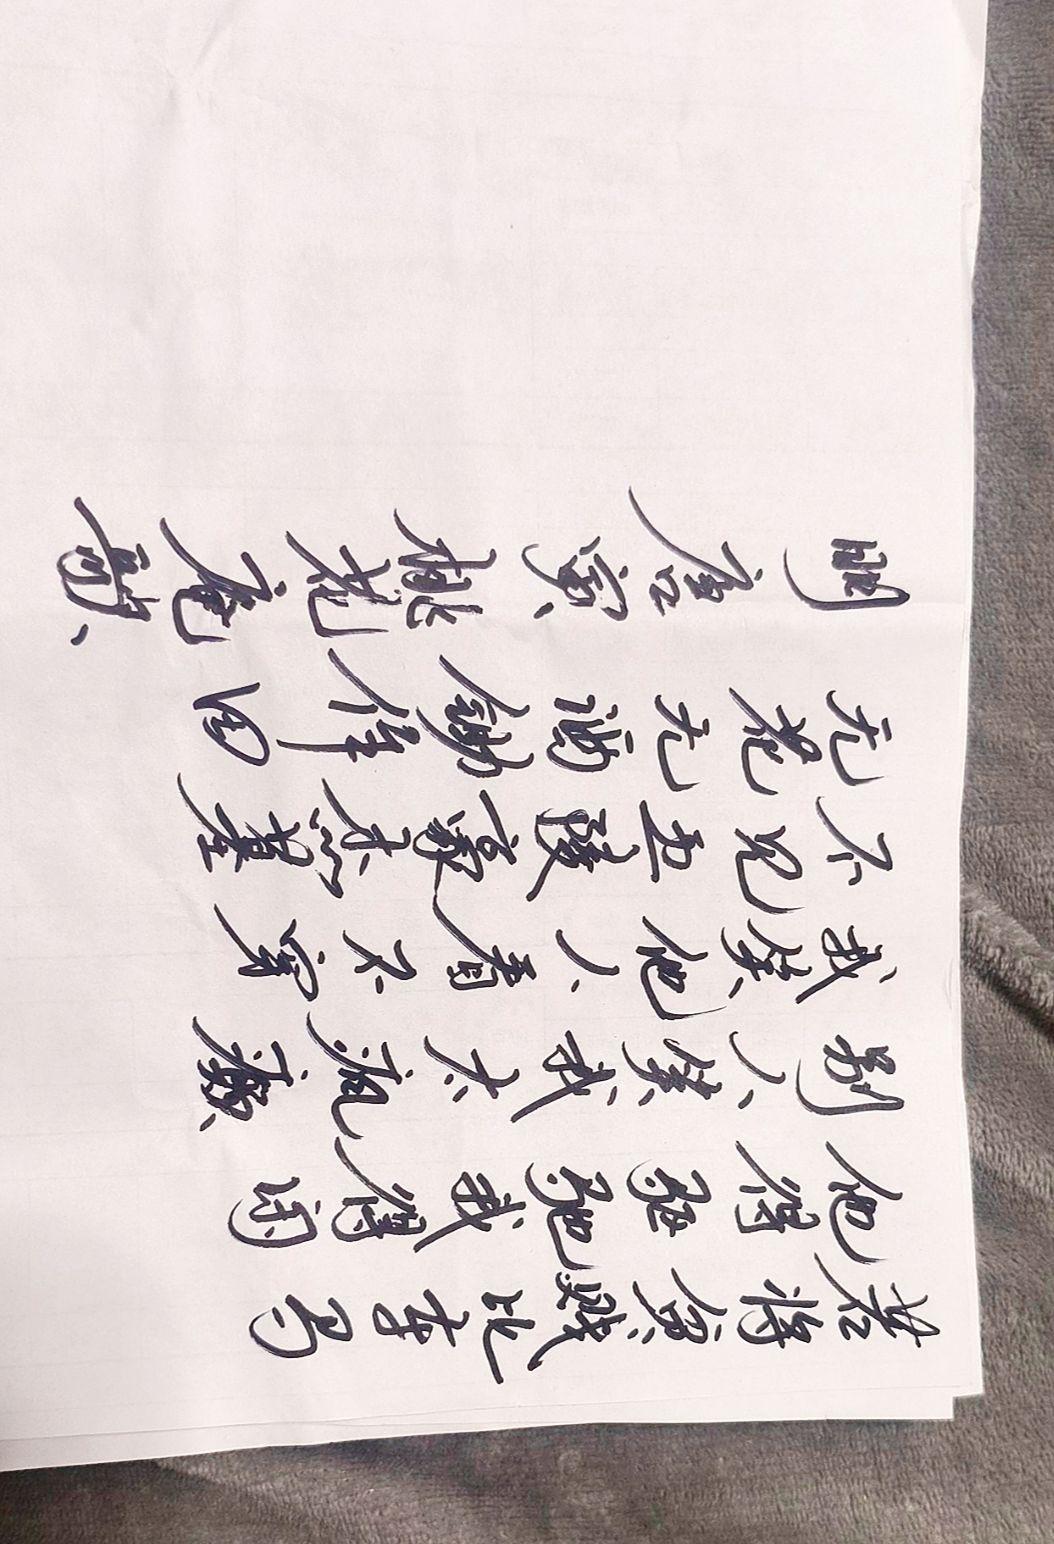 若将贫贱比车马
他得驱驰我得闲
别人笑我太疯癫
我笑他人看不穿
不见五陵豪杰墓
无花无酒锄作田
明唐寅桃花庵歌